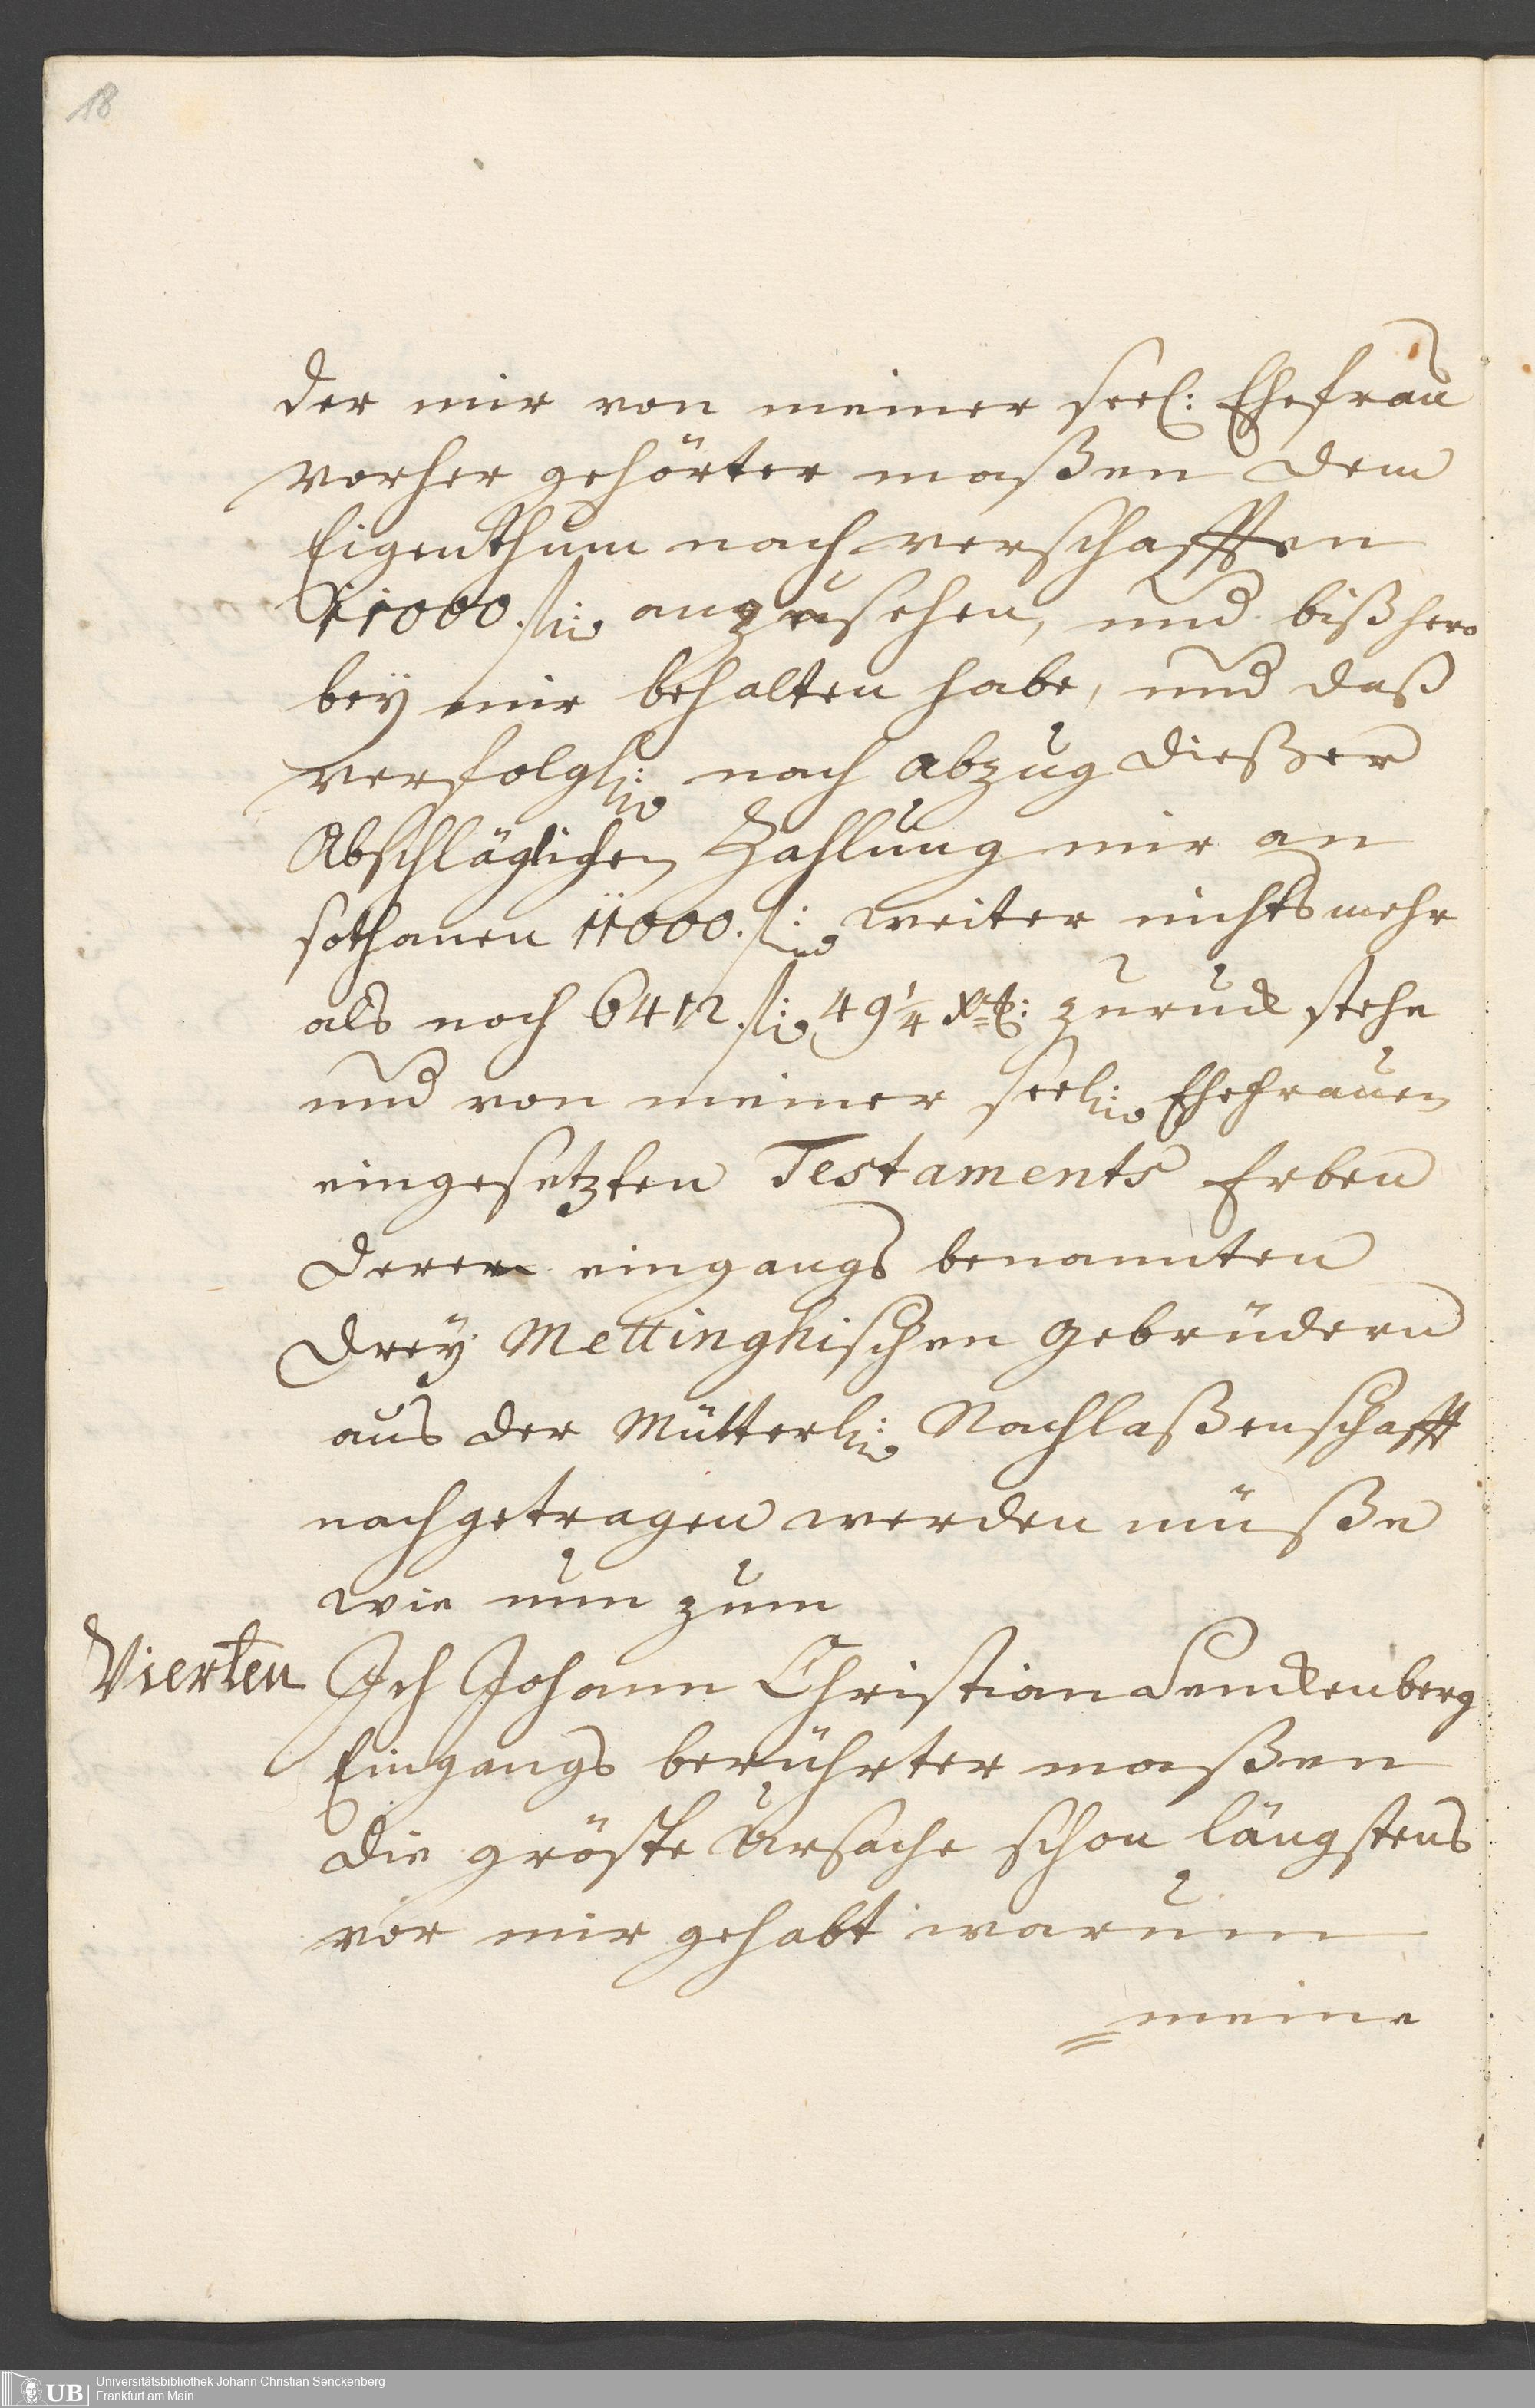 18
der mir von meiner seel: Ehefrau
vorher gehörter maßen dem
Eigenthum nach verschafften
11000. fl: anzusehen, und bißhero
bey mir behalten habe, und daß
verfolgl: nach abzug dießer
Abschläglichen Zahlung mir an
sothanen 11000. fl: weiter nichts mehr
als noch 6412. fl: 49 1/4 Xr: zuruck stehe
und von meiner seel: Ehefrauen
eingesetzten Testaments Erben
deren eingangs benannten
drey Mettinghischen gebrüdern
aus der Mütterl: Nachlaßenschafft
nachgetragen werden müßen
wie nun zum
Vierten Ich Johann Christian Senckenberg
Eingangs berührter maßen
die gröste Ursache schon längstens
vor mir gehabt warum
meine
UB Universitätsbibliothek Johann Christian Senckenberg
Frankfurt am Main